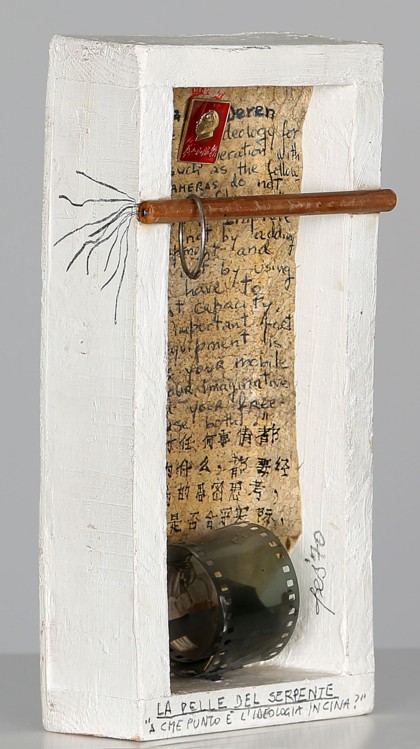 Deren
deology for
eration with
such as the follow
AMERAS do not
improve
ing by adding
tment and
by using
have to
t capacity.
important part
quipment is
your mobile
our imaginative
your free
use both."
对任何事情都
什么，都要经
的周密思考，
是否合乎实际，
'70
LA PELLE DEL SERPENTE
"A CHE PUNTO E' L'IDEOLOGIA IN CINA?"